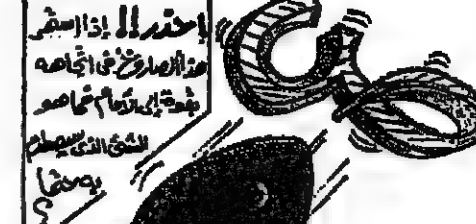 احذر!! إذا استمر
هذا الصاروخ فى اتجاهه
بقوة إلى الأمام فما هو
الشئ الذى سيصطدم
به حتما
؟